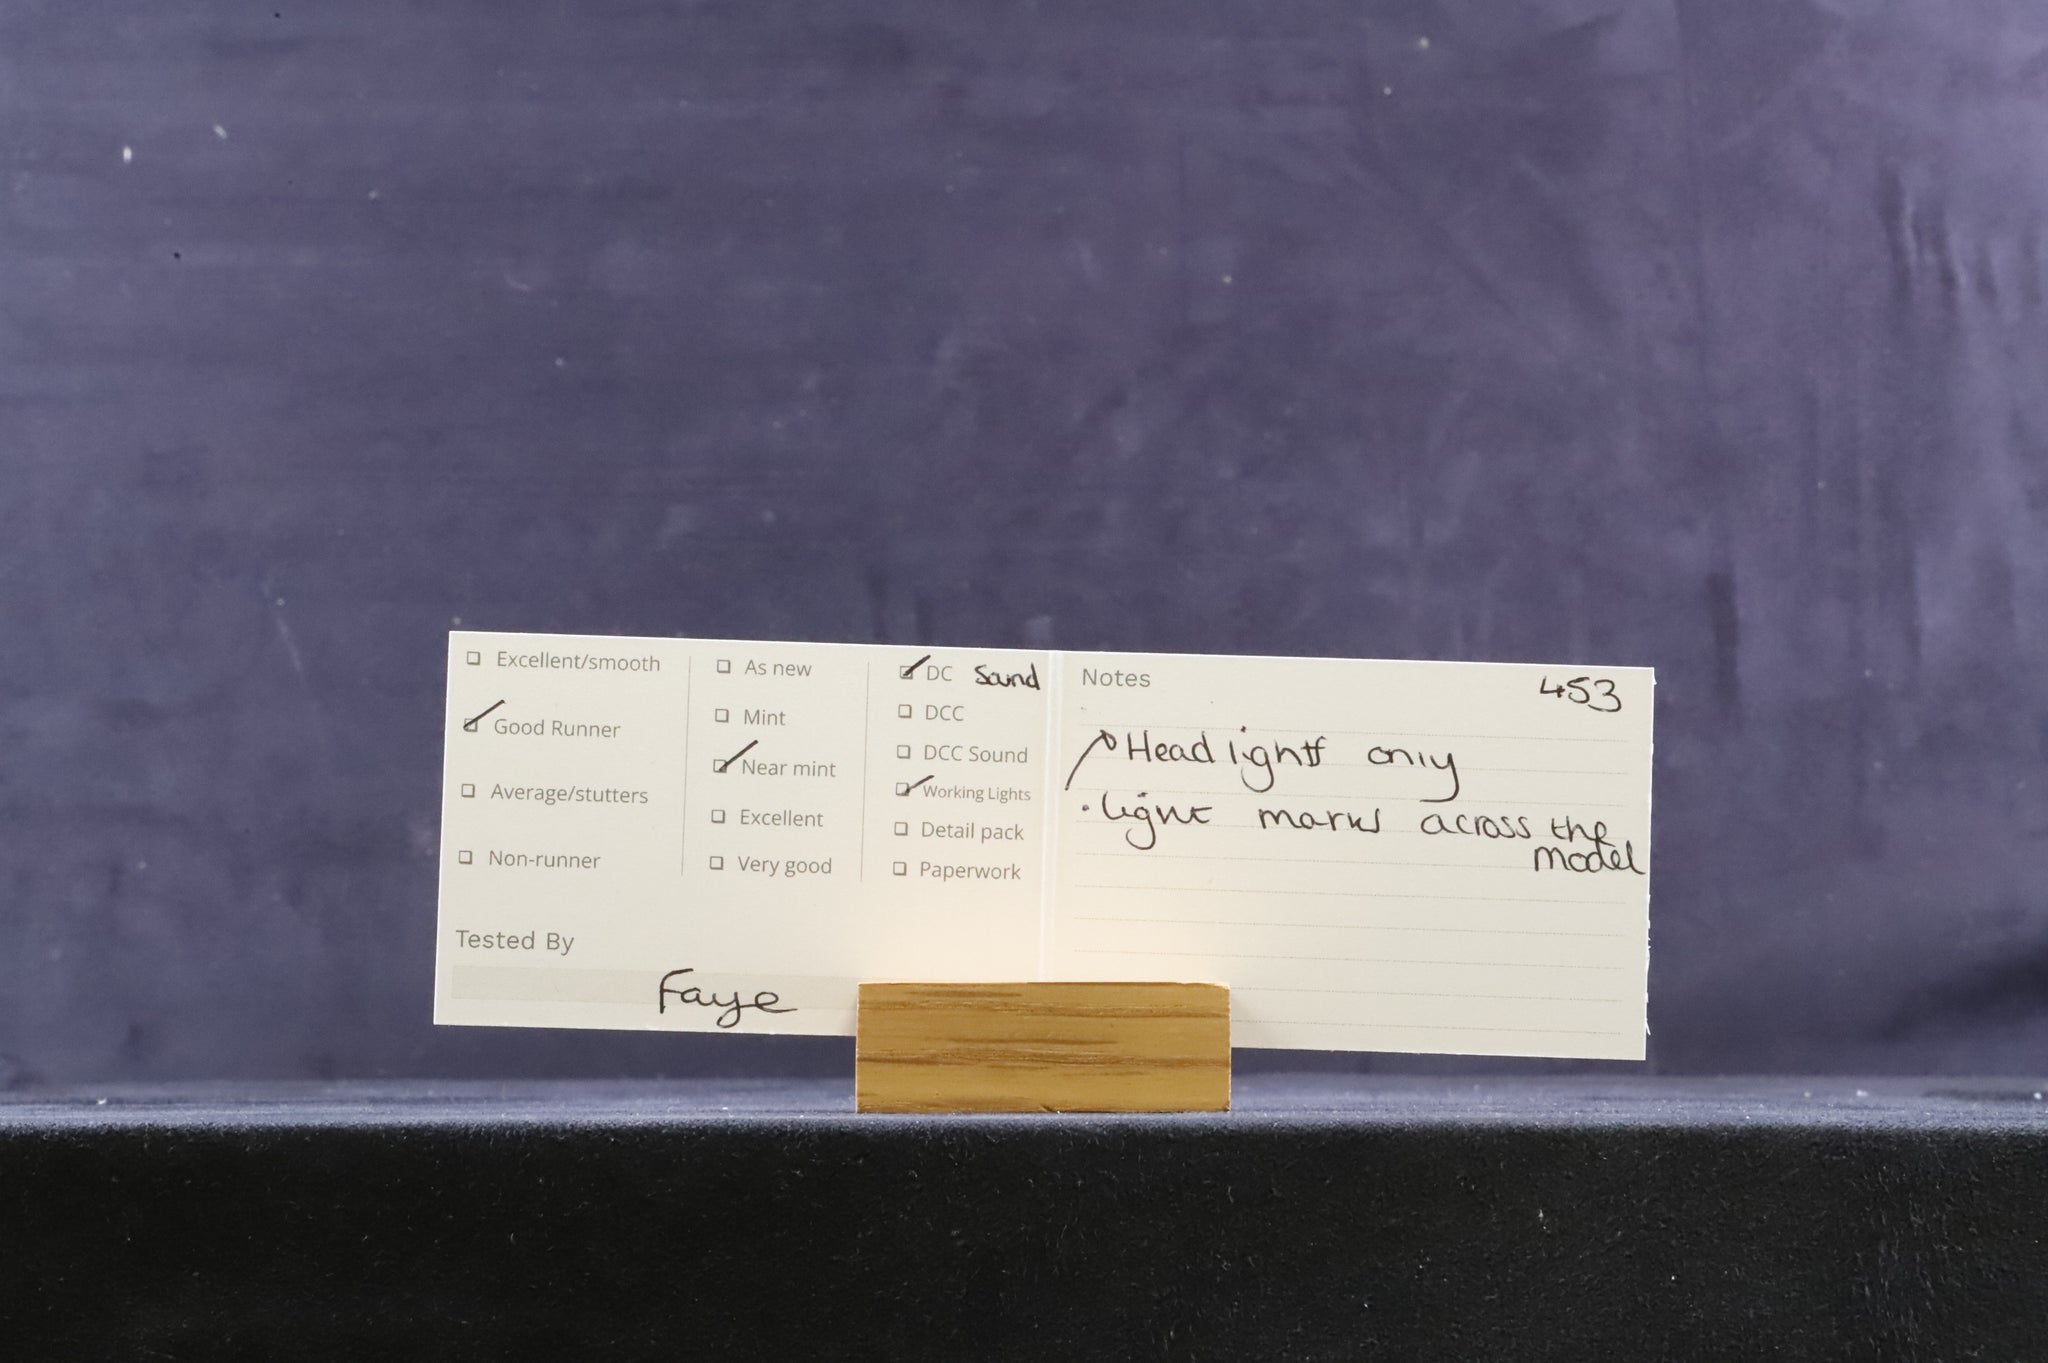 Excellent/smooth
Good Runner
Average/stutters
Non-runner
As new
Mint
Near mint
Excellent
Very good
DC Sound
DCC
DCC Sound
Working Lights
Detail pack
Paperwork
Tested By
Faye
Notes
453
Headlights only
· light marks across the
model